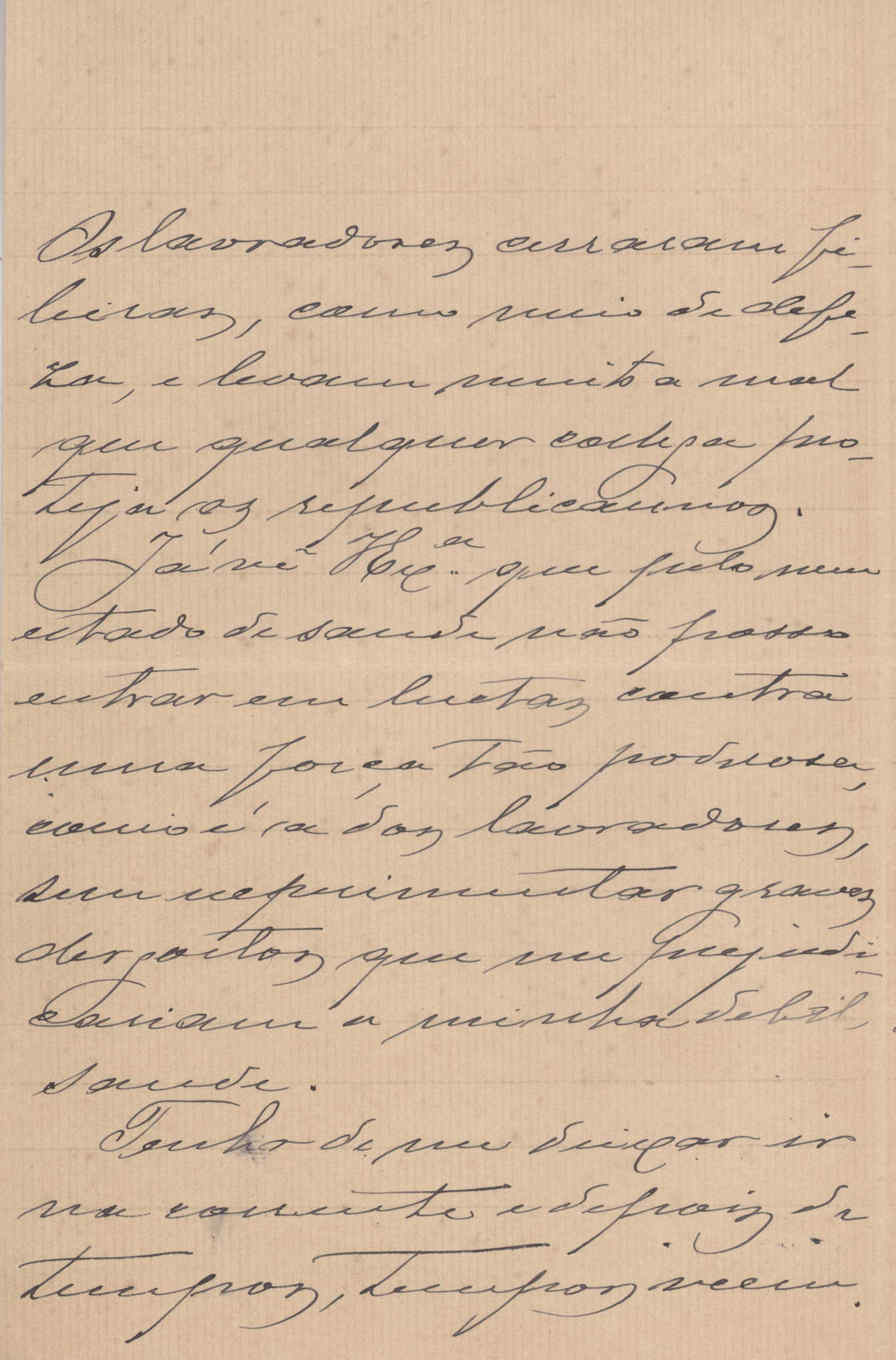 Os lavradores cerraram fi-
leiras, como meio de defe-
za, e levam muito a mal
que qualquer collega pro-
teja os republicanos.
Já vê V Ex.ª que pelo meu
estado de saude não posso
entrar em luctas contra
uma força tão poderosa,
como é a dos lavradores,
sem experimentar graves
desgostos que me prejudi-
cariam a minha debil
saude.
Tenho de me deixar ir
na corrente e depois de
tempos, tempos veem.